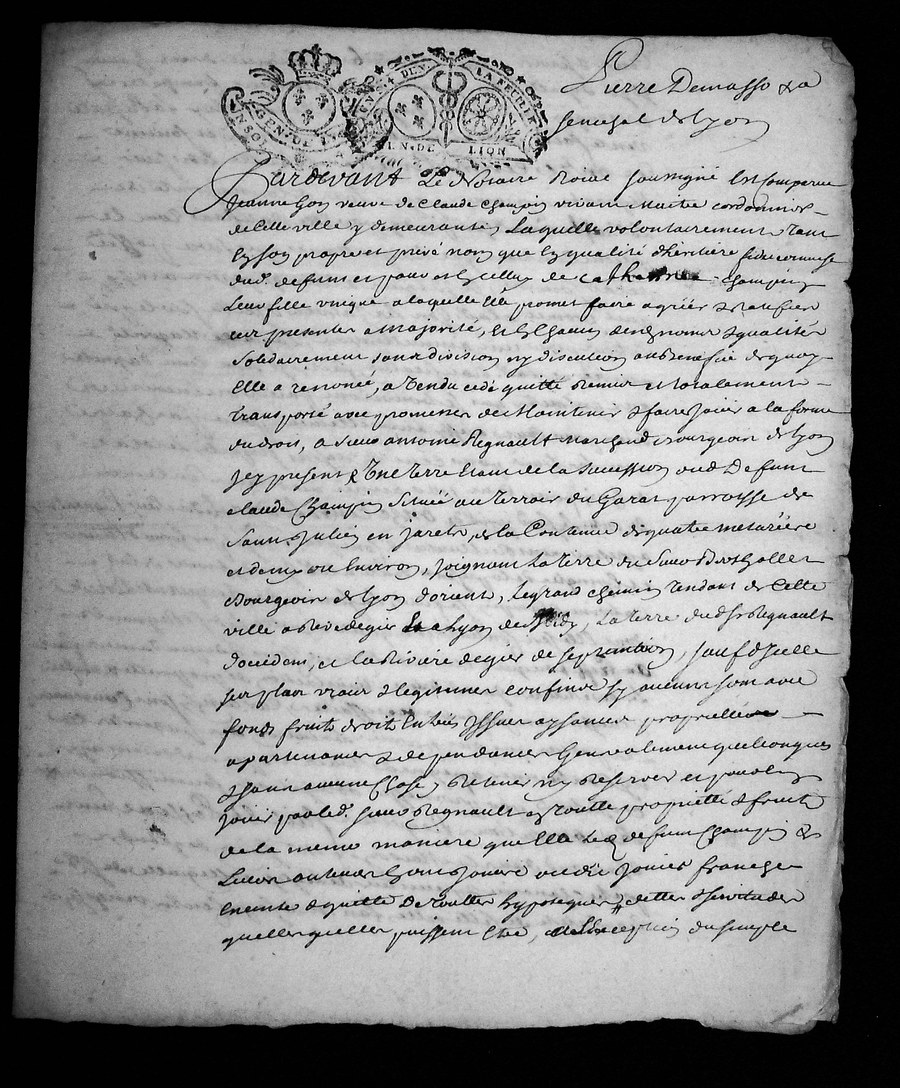 GEN. DE
LA FEUILLE
EN. DE LION
Pierre Demasso &a
seneχal de Lyon
Pardevant Le Notaire Roial soussigné Est comparue
Jeanne veuve de Claude Champin vivant Maitre cordonnier
de cette ville y demeurante, Laquelle volontairement tant
En son propre et privé nom que En qualité d'heritiere
dud. defunt et pour et de Catherine Champin
Leur fille unique a laquelle Elle promet faire agréer & Ratifier
ces presentes a Majorité, Et En Chacun desd. noms & qualités
Solidairement sans division ny discution au Benefice desquels
Elle a renoncé, a Vendu cedé quitté Remis et totalement
transporté avec promesse de Maintenir & faire Jouir a la forme
du droit, a Sieur antoine Regnault Marchand Bourgeois de Lyon
Icy present Une terre Etant de la succession dud Defunt
claude Champin Située au terroir du Garat parroisse de
Saint Julien en Jarets, de la Contenue de quatre meteréere
et demy ou Environ, Joignant La terre du Sieur
Bourgeois de Lyon d'orient, Le grand chemin tendant de Cette
ville a Rivedegier Et a Lyon de Midy, La terre dud. Sr. Regnault
d'occident, et La Riviere de gier de septentrion, sauf d'icelle
ses plus vrais & legitimes confins sy aucuns sont avec
fonds fruits droits Entrées Issues aysances proprietés
apartenances & dependances Generalement quelconques
& sans aucune Chose Retenir ny Reserver et pour En
Jouir par led. sieur Regnault En toutte proprieté & fruits
de la meme maniere quelle Led. defunt Champin &
Leurs auteurs En ont Jouis ou dû Jouir franche
Exempte & quitte de touttes hypoteques, dettes & servitudes
quelles quelles puissent Etre, a L'Exception du simple